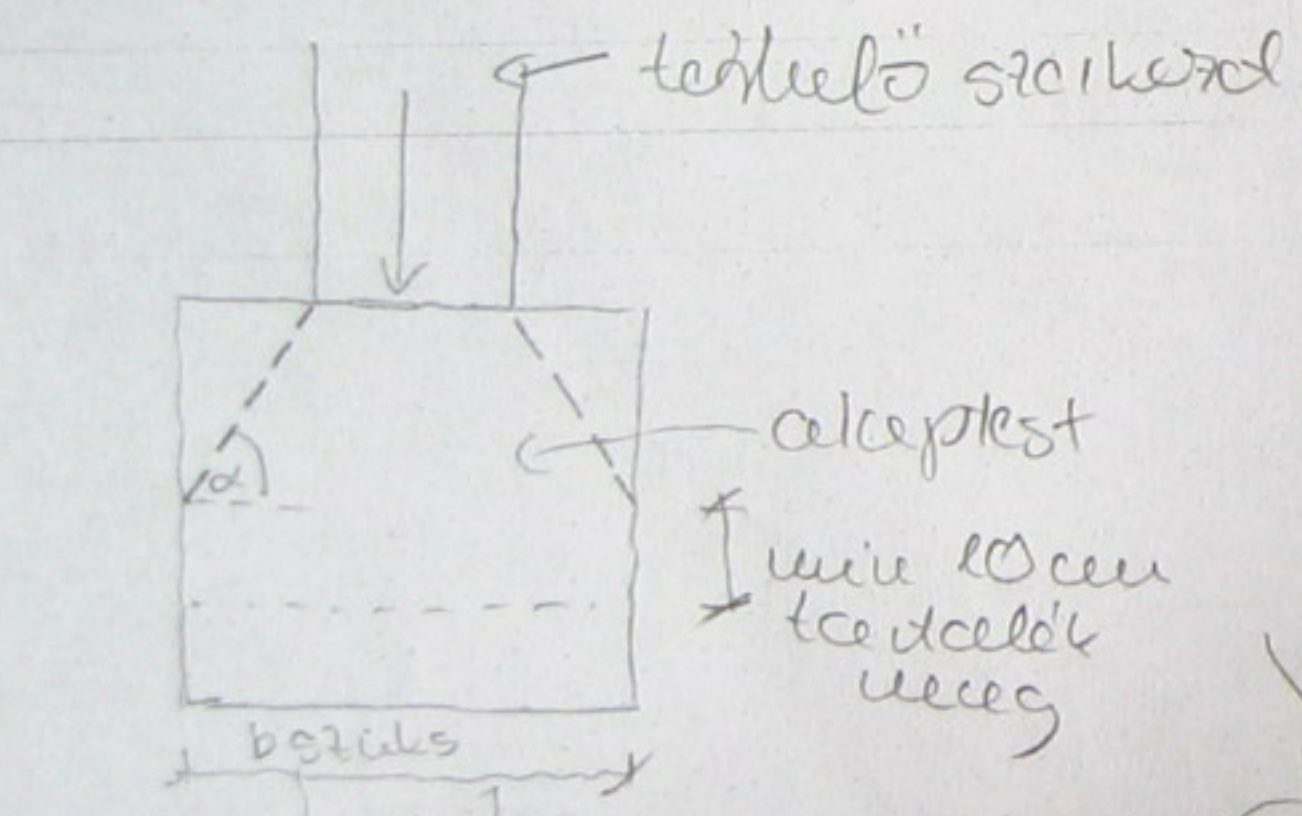 terhelő szerkezet
alaptest
α
min 10 cm
tartalék
meceg
b szüks